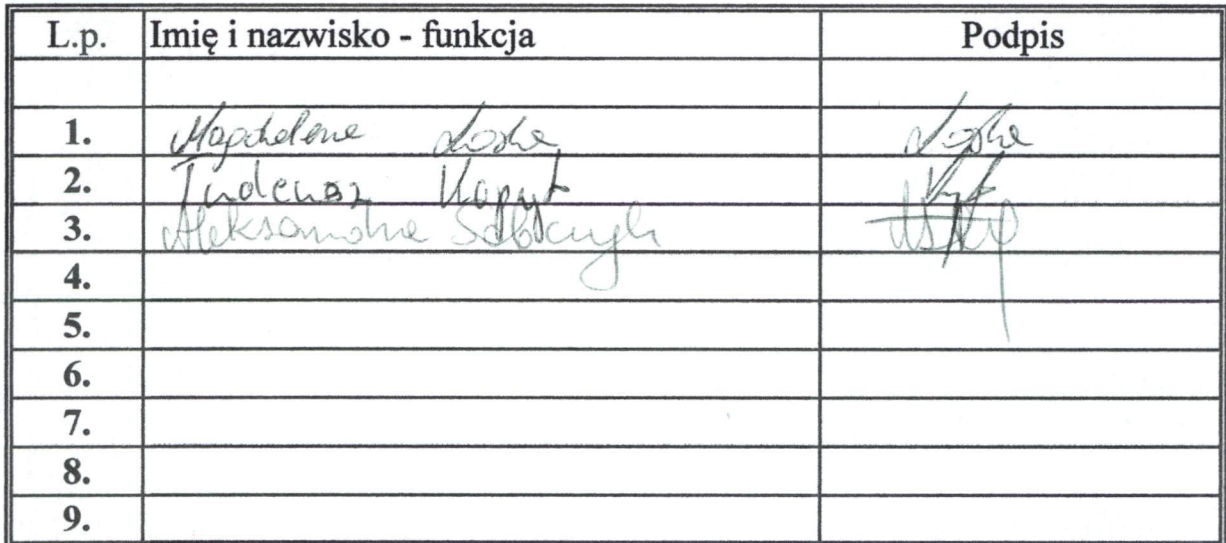 L.p. Imię i nazwisko - funkcja Podpis
1. Magdalena Loska Loska
2. Tadeusz Kopyt
3. Aleksandra
4.
5.
6.
7.
8.
9.